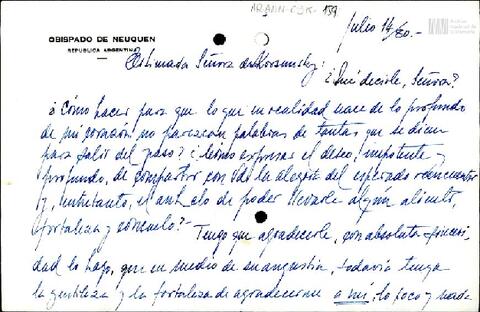 ARANM-CBK-139
Julio 14/80.-
OBISPADO DE NEUQUEN
REPUBLICA ARGENTINA
Estimada Señora de Korsunsky:
¿Qué decirle, Señora?
¿Cómo hacer para que lo que en realidad nace de lo profundo
de mi corazón no parezcan palabras de tantas que se dicen
para salir del paso? ¿Cómo expresar el deseo, impotente y
profundo, de compartir con Vds la alegría del esperado reencuentro
y, entretanto, el anhelo de poder llevarle algún aliento,
fortaleza y consuelo?-
Tengo que agradecerle, con absoluta sinceri-
dad lo hago, que en medio de su angustia, todavía tenga
la gentileza y la fortaleza de agradecerme a mí, lo poco y nada